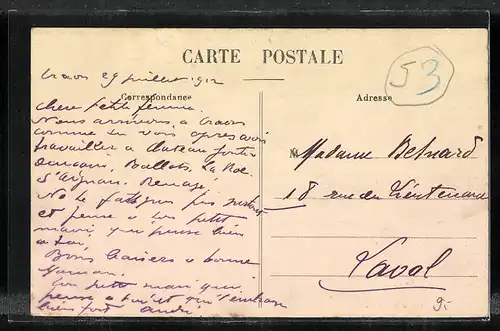 CARTE POSTALE
Craon 29 juillet 1912
Correspondance
Chère petite femme
Nous arrivons a Craon
comme tu vois apres avoir
travailler a Chateau gontier
Ballots, La Roe
S'Aignan, Renazé.
Ne te fatigues pas surtout
et pense a ton petit
mari qui pense bien
a toi.
Bons baisers a bonne
maman.
Ton petit mari qui
pense a toi et qui t'embrasse
bien fort André
Adresse
53
Madame Besnard
18 rue du Lieutenant
Laval
9.-